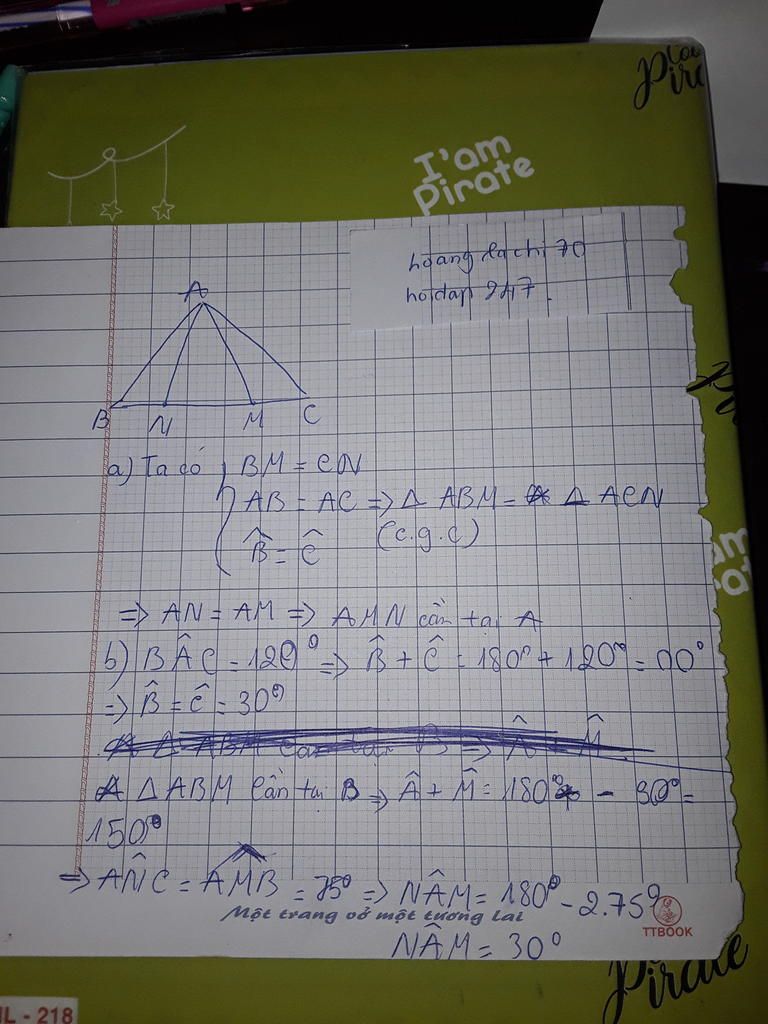 Pirate
I'am
Pirate
hoang dachi 70
hoidap 247.
A
B N M C
a) Ta có { BM = CN
AB = AC => Δ ABM = Δ ACN
B̂ = Ĉ (c.g.c)
=> AN = AM => AMN cân tại A
b) BÂC = 120° => B̂ + Ĉ = 180° + 120° = 00°
=> B̂ = Ĉ = 30°
Δ ABM cân tại B => Â + M̂ = 180° - 30° =
150°
=> AN̂C = AM̂B = 75° => NÂM = 180° - 2.75°
Một trang vở một tương lai
TTBOOK
NÂM = 30°
Pirate
IL - 218